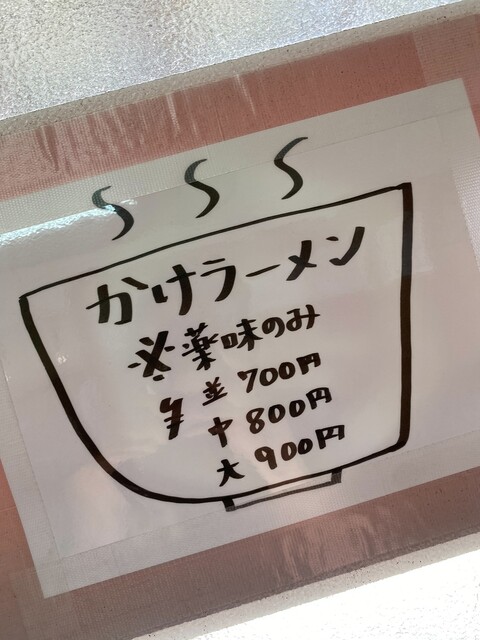 かけラーメン
※薬味のみ
並 700円
中 800円
大 900円